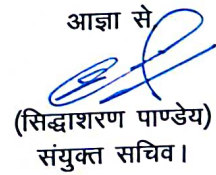 आज्ञा से
(सिद्धाशरण पाण्डेय)
संयुक्त सचिव।